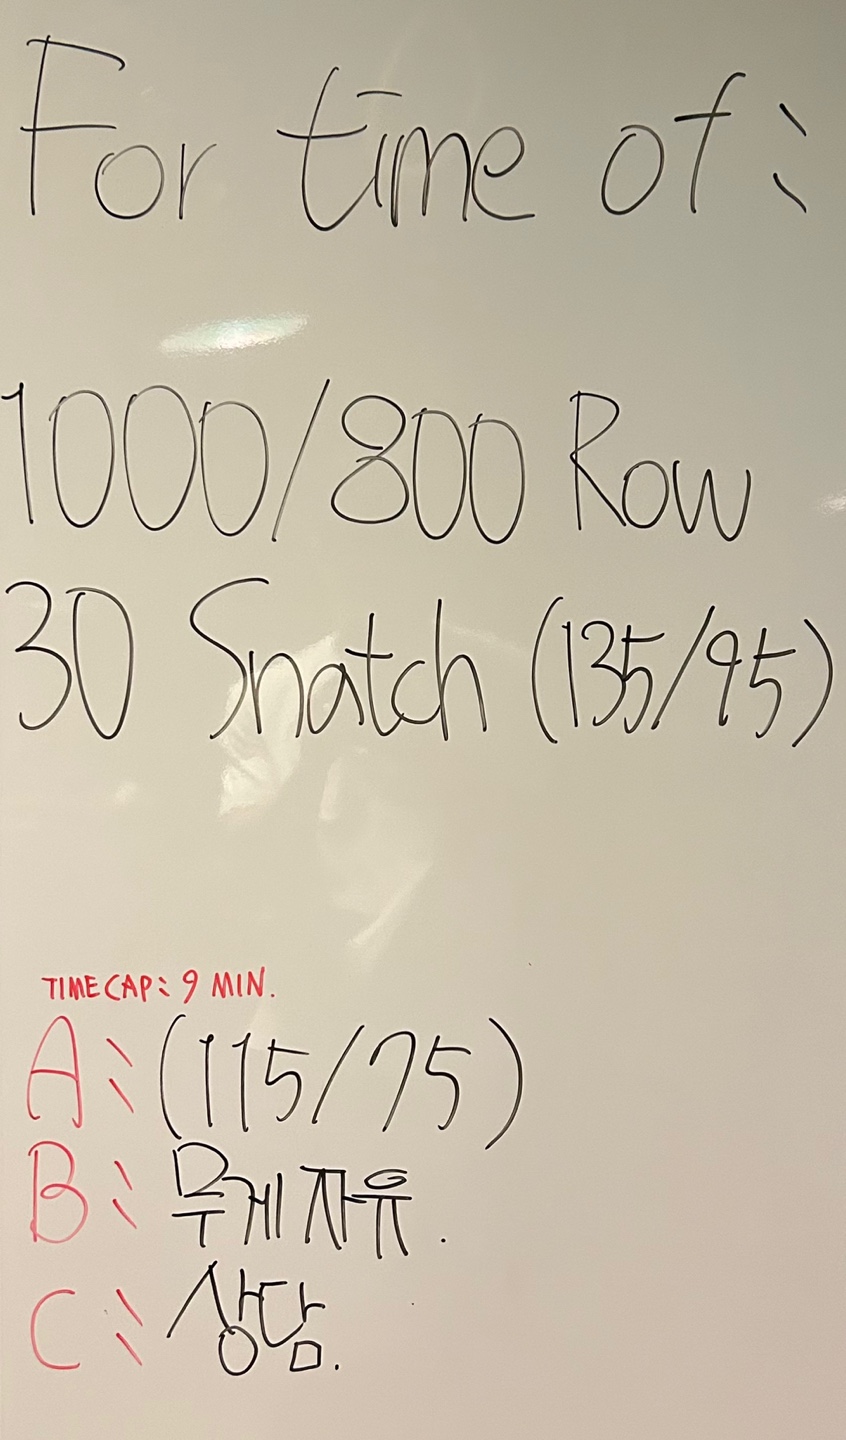 For time of:
1000/800 Row
30 Snatch (135/95)
TIME CAP: 9 MIN.
A: (115/75)
B: 무게 자유.
C: 상담.